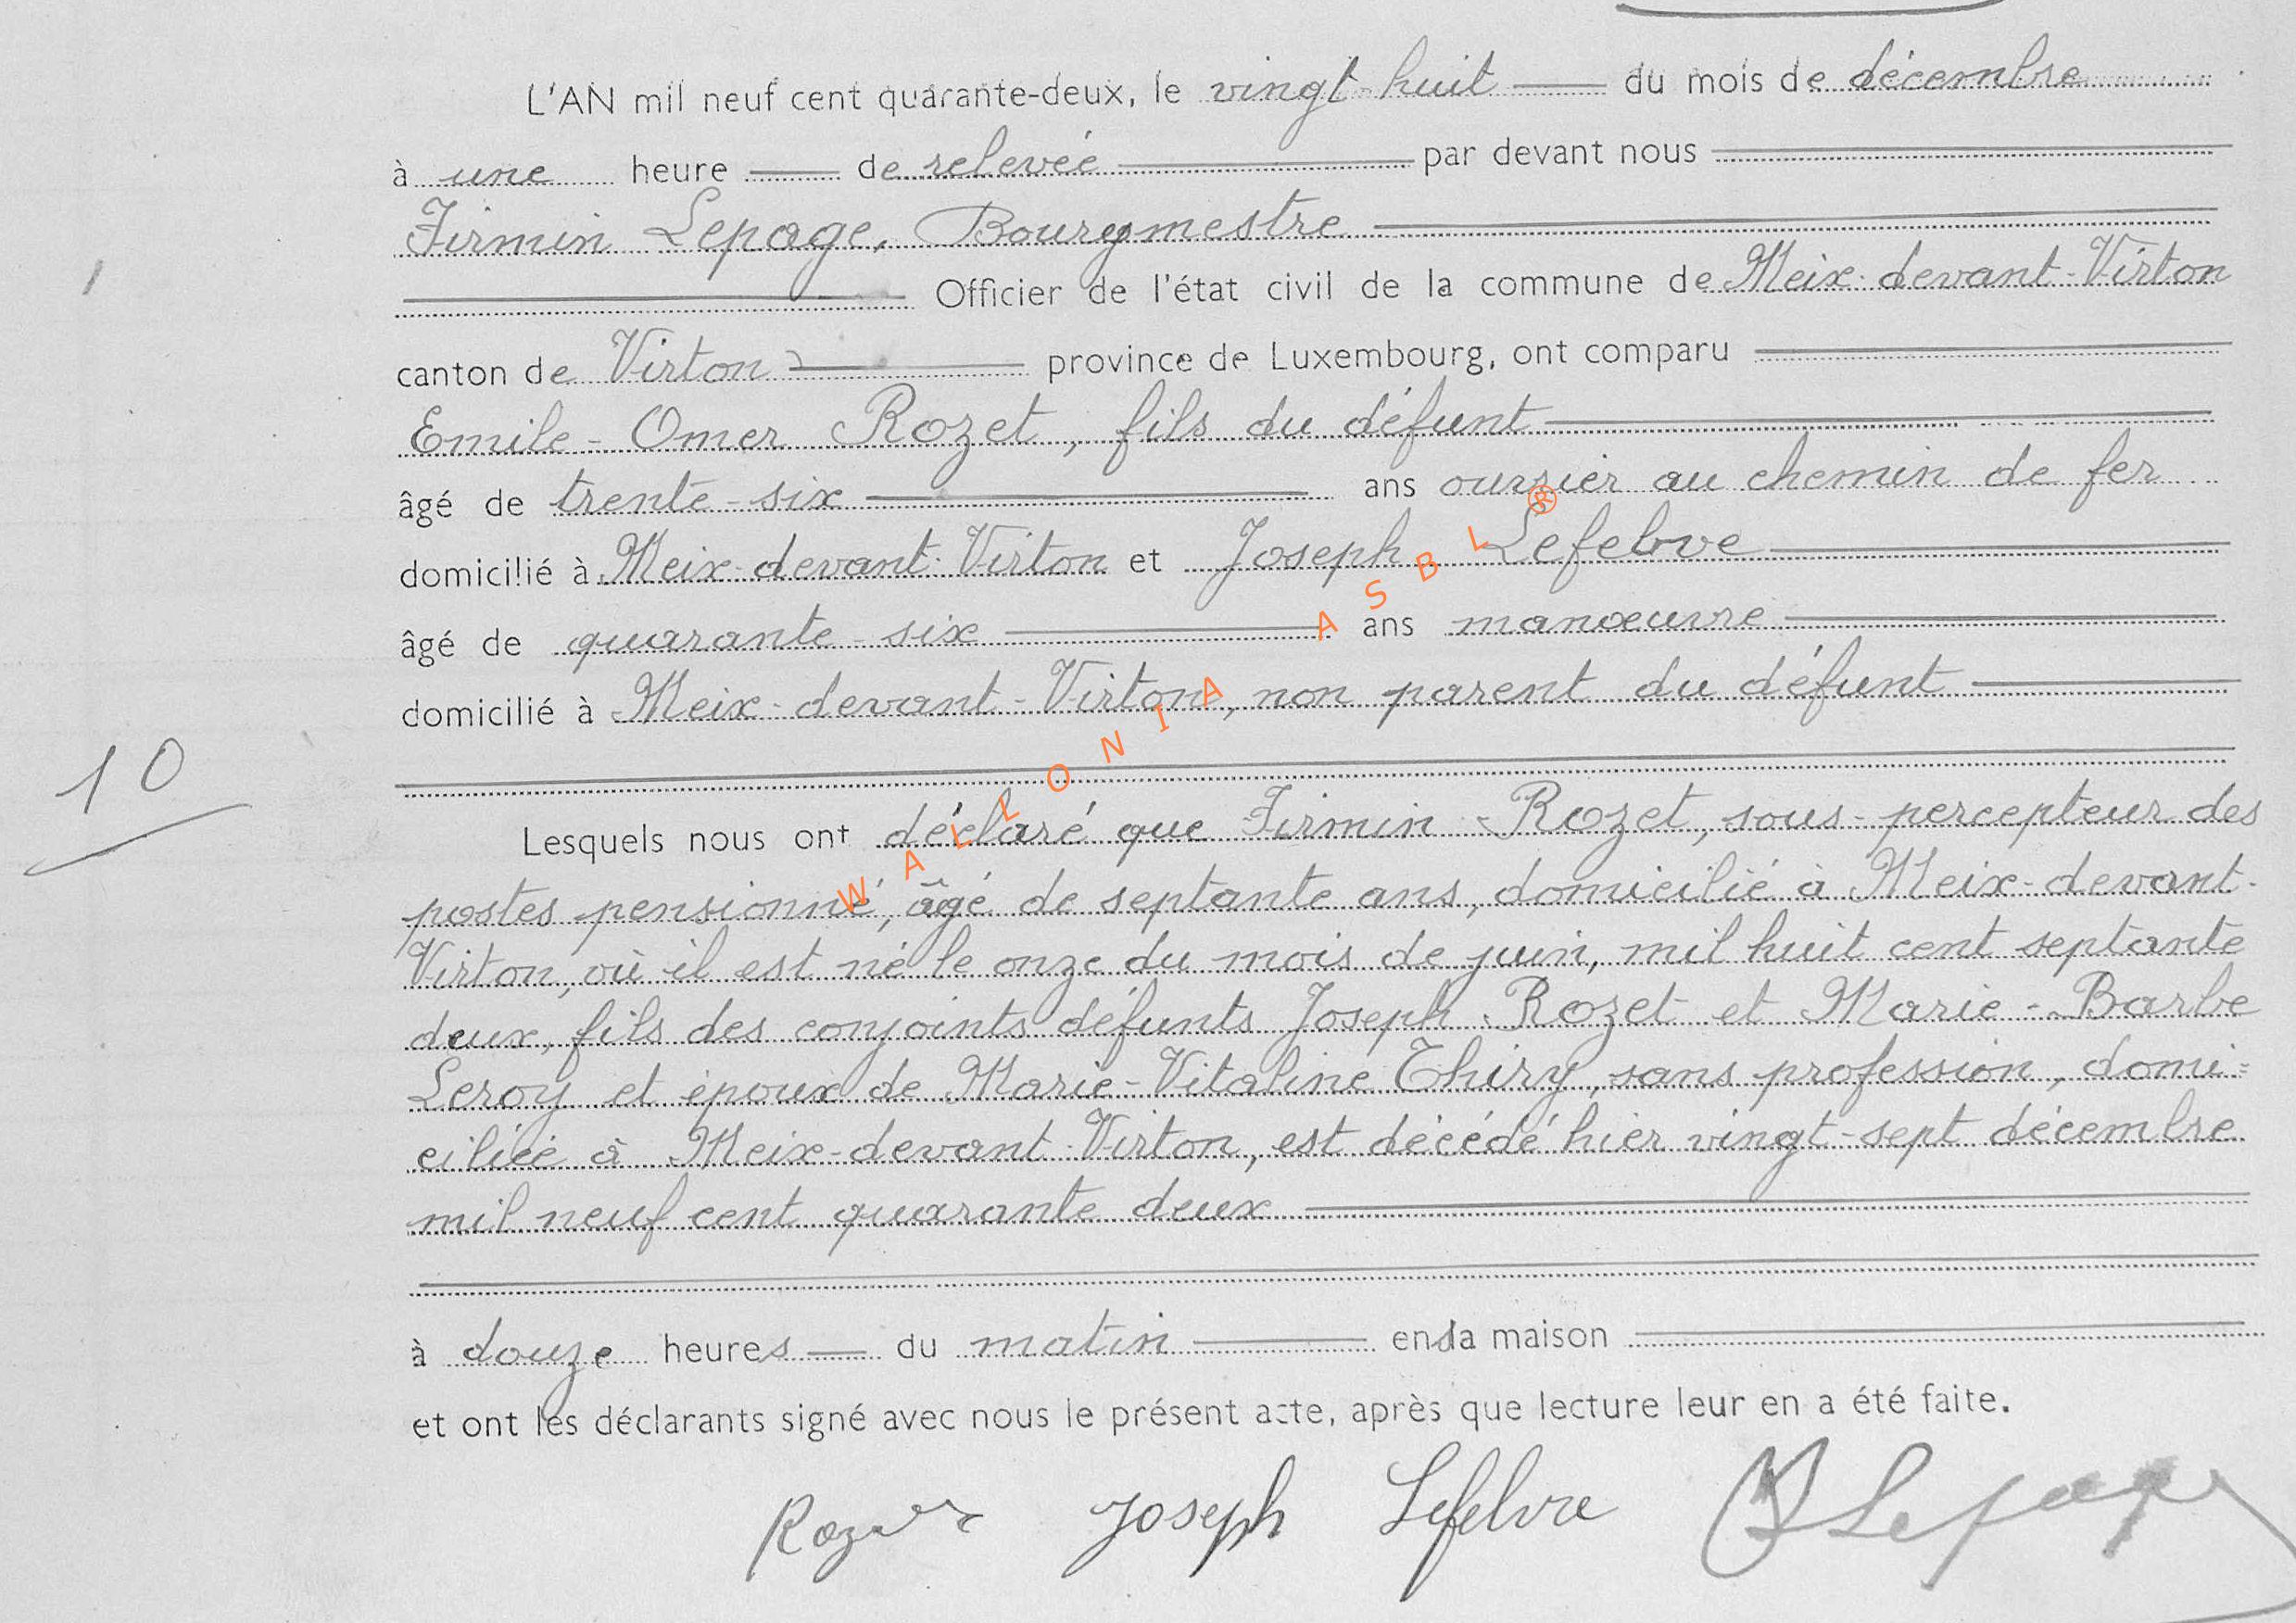 L'AN mil neuf cent quarante-deux, le vingt-huit du mois de décembre
à une heure de relevée par devant nous
Firmin Lepage, Bourgmestre
Officier de l'état civil de la commune de Meix-devant-Virton
canton de Virton province de Luxembourg, ont comparu
Emile-Omer Rozet, fils du défunt
âgé de trente-six ans ouvrier au chemin de fer
domicilié à Meix-devant-Virton et Joseph Lefebvre
âgé de quarante-six ans manœuvre
domicilié à Meix-devant-Virton, non parent du défunt
10
Lesquels nous ont déclaré que Firmin Rozet, sous-percepteur des
postes pensionné, âgé de septante ans, domicilié à Meix-devant-
Virton, où il est né le onze du mois de juin, mil huit cent septante
deux, fils des conjoints défunts Joseph Rozet et Marie-Barbe
Leroy et époux de Marie-Vitaline Thiry, sans profession, domi=
ciliée à Meix-devant-Virton, est décédé hier vingt-sept décembre
mil neuf cent quarante deux
à douze heures du matin en sa maison
et ont les déclarants signé avec nous le présent acte, après que lecture leur en a été faite.
Joseph Lefebvre Lepage
WALLONIA ASBL®